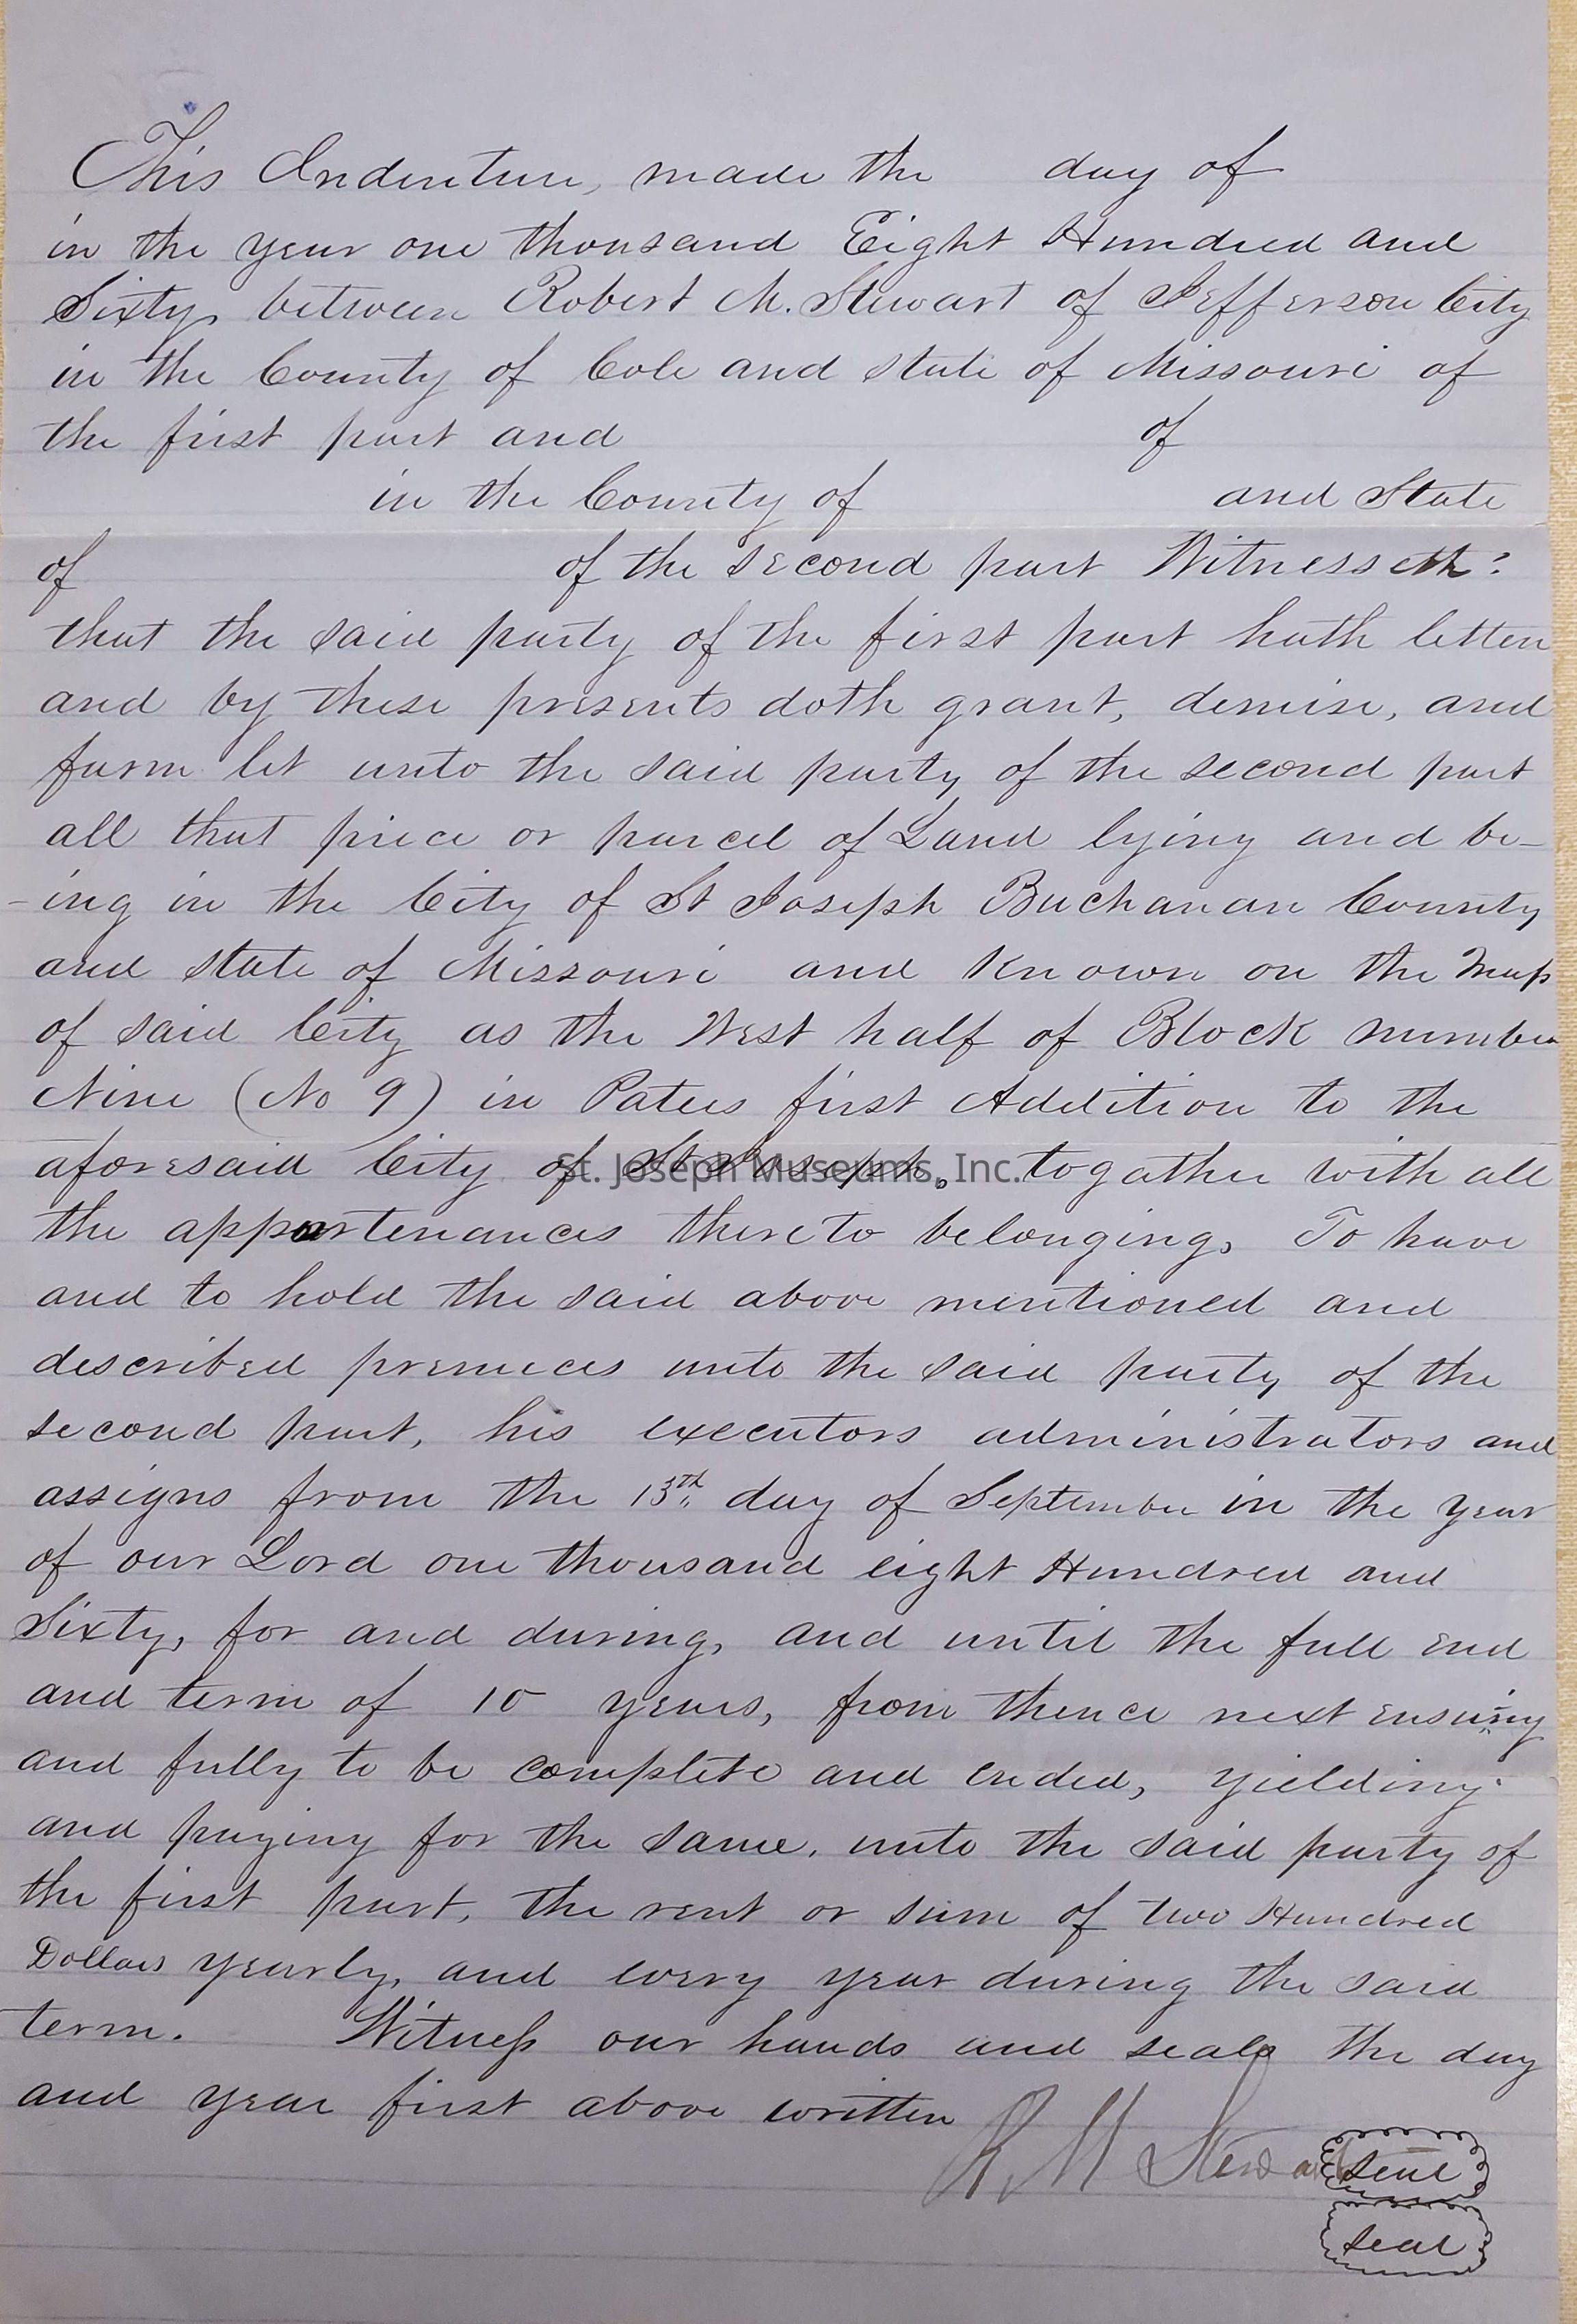 This Indenture, made the day of
in the year one thousand Eight Hundred and
Sixty, between Robert M. Stewart of Jefferson City
in the County of Cole and State of Missouri of
the first part and of
in the County of and State
of of the second part Witnesseth:
that the said party of the first part hath letten
and by these presents doth grant, demise, and
farm let unto the said party of the second part
all that piece or parcel of Land lying and be-
-ing in the City of St Joseph Buchanan County
and state of Missouri and Known on the Map
of said City as the West half of Block number
Nine (No 9) in Patees first Addition to the
aforesaid City of St Joseph, togather with all
St. Joseph Museums, Inc.
the appartenances thereto belonging, To have
and to hold the said above mentioned and
described premices unto the said party of the
second part, his executors administrators and
assigns from the 13th day of September in the year
of our Lord one thousand eight Hundred and
Sixty, for and during, and until the full end
and term of 10 years, from thence next ensuing
and fully to be complete and ended, yielding
and paying for the same, unto the said party of
the first part, the rent or sum of two Hundred
Dollars yearly, and every year during the said
term. Witness our hands and seals the day
and year first above written
R M Stewart seal
seal